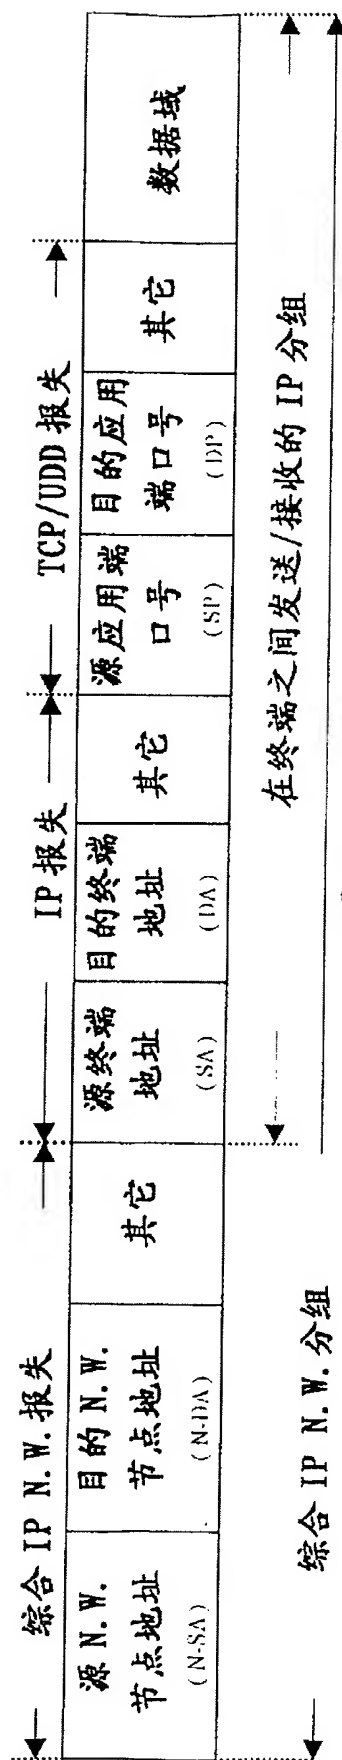 综合 IP N.W. 报失
IP 报失
TCP/UDD 报失
源 N.W.
节点地址
(N-SA)
目的 N.W.
节点地址
(N-DA)
其它
源终端
地址
(SA)
目的终端
地址
(DA)
其它
源应用端
口号
(SP)
目的应用
端口号
(DP)
其它
数据域
在终端之间发送/接收的 IP 分组
综合 IP N.W. 分组